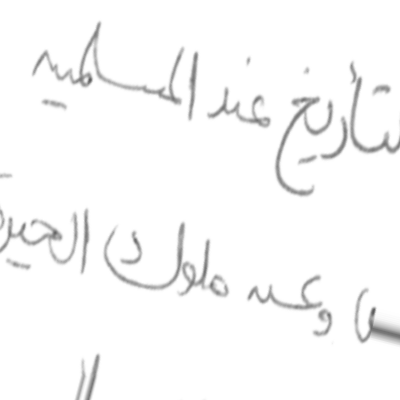 لتأريخ عند المسلمين
وعن ملوك الحيرة